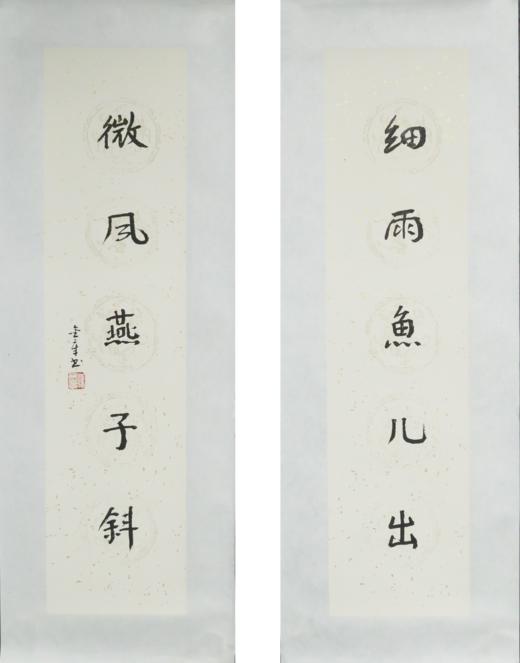 細雨魚儿出
微风燕子斜